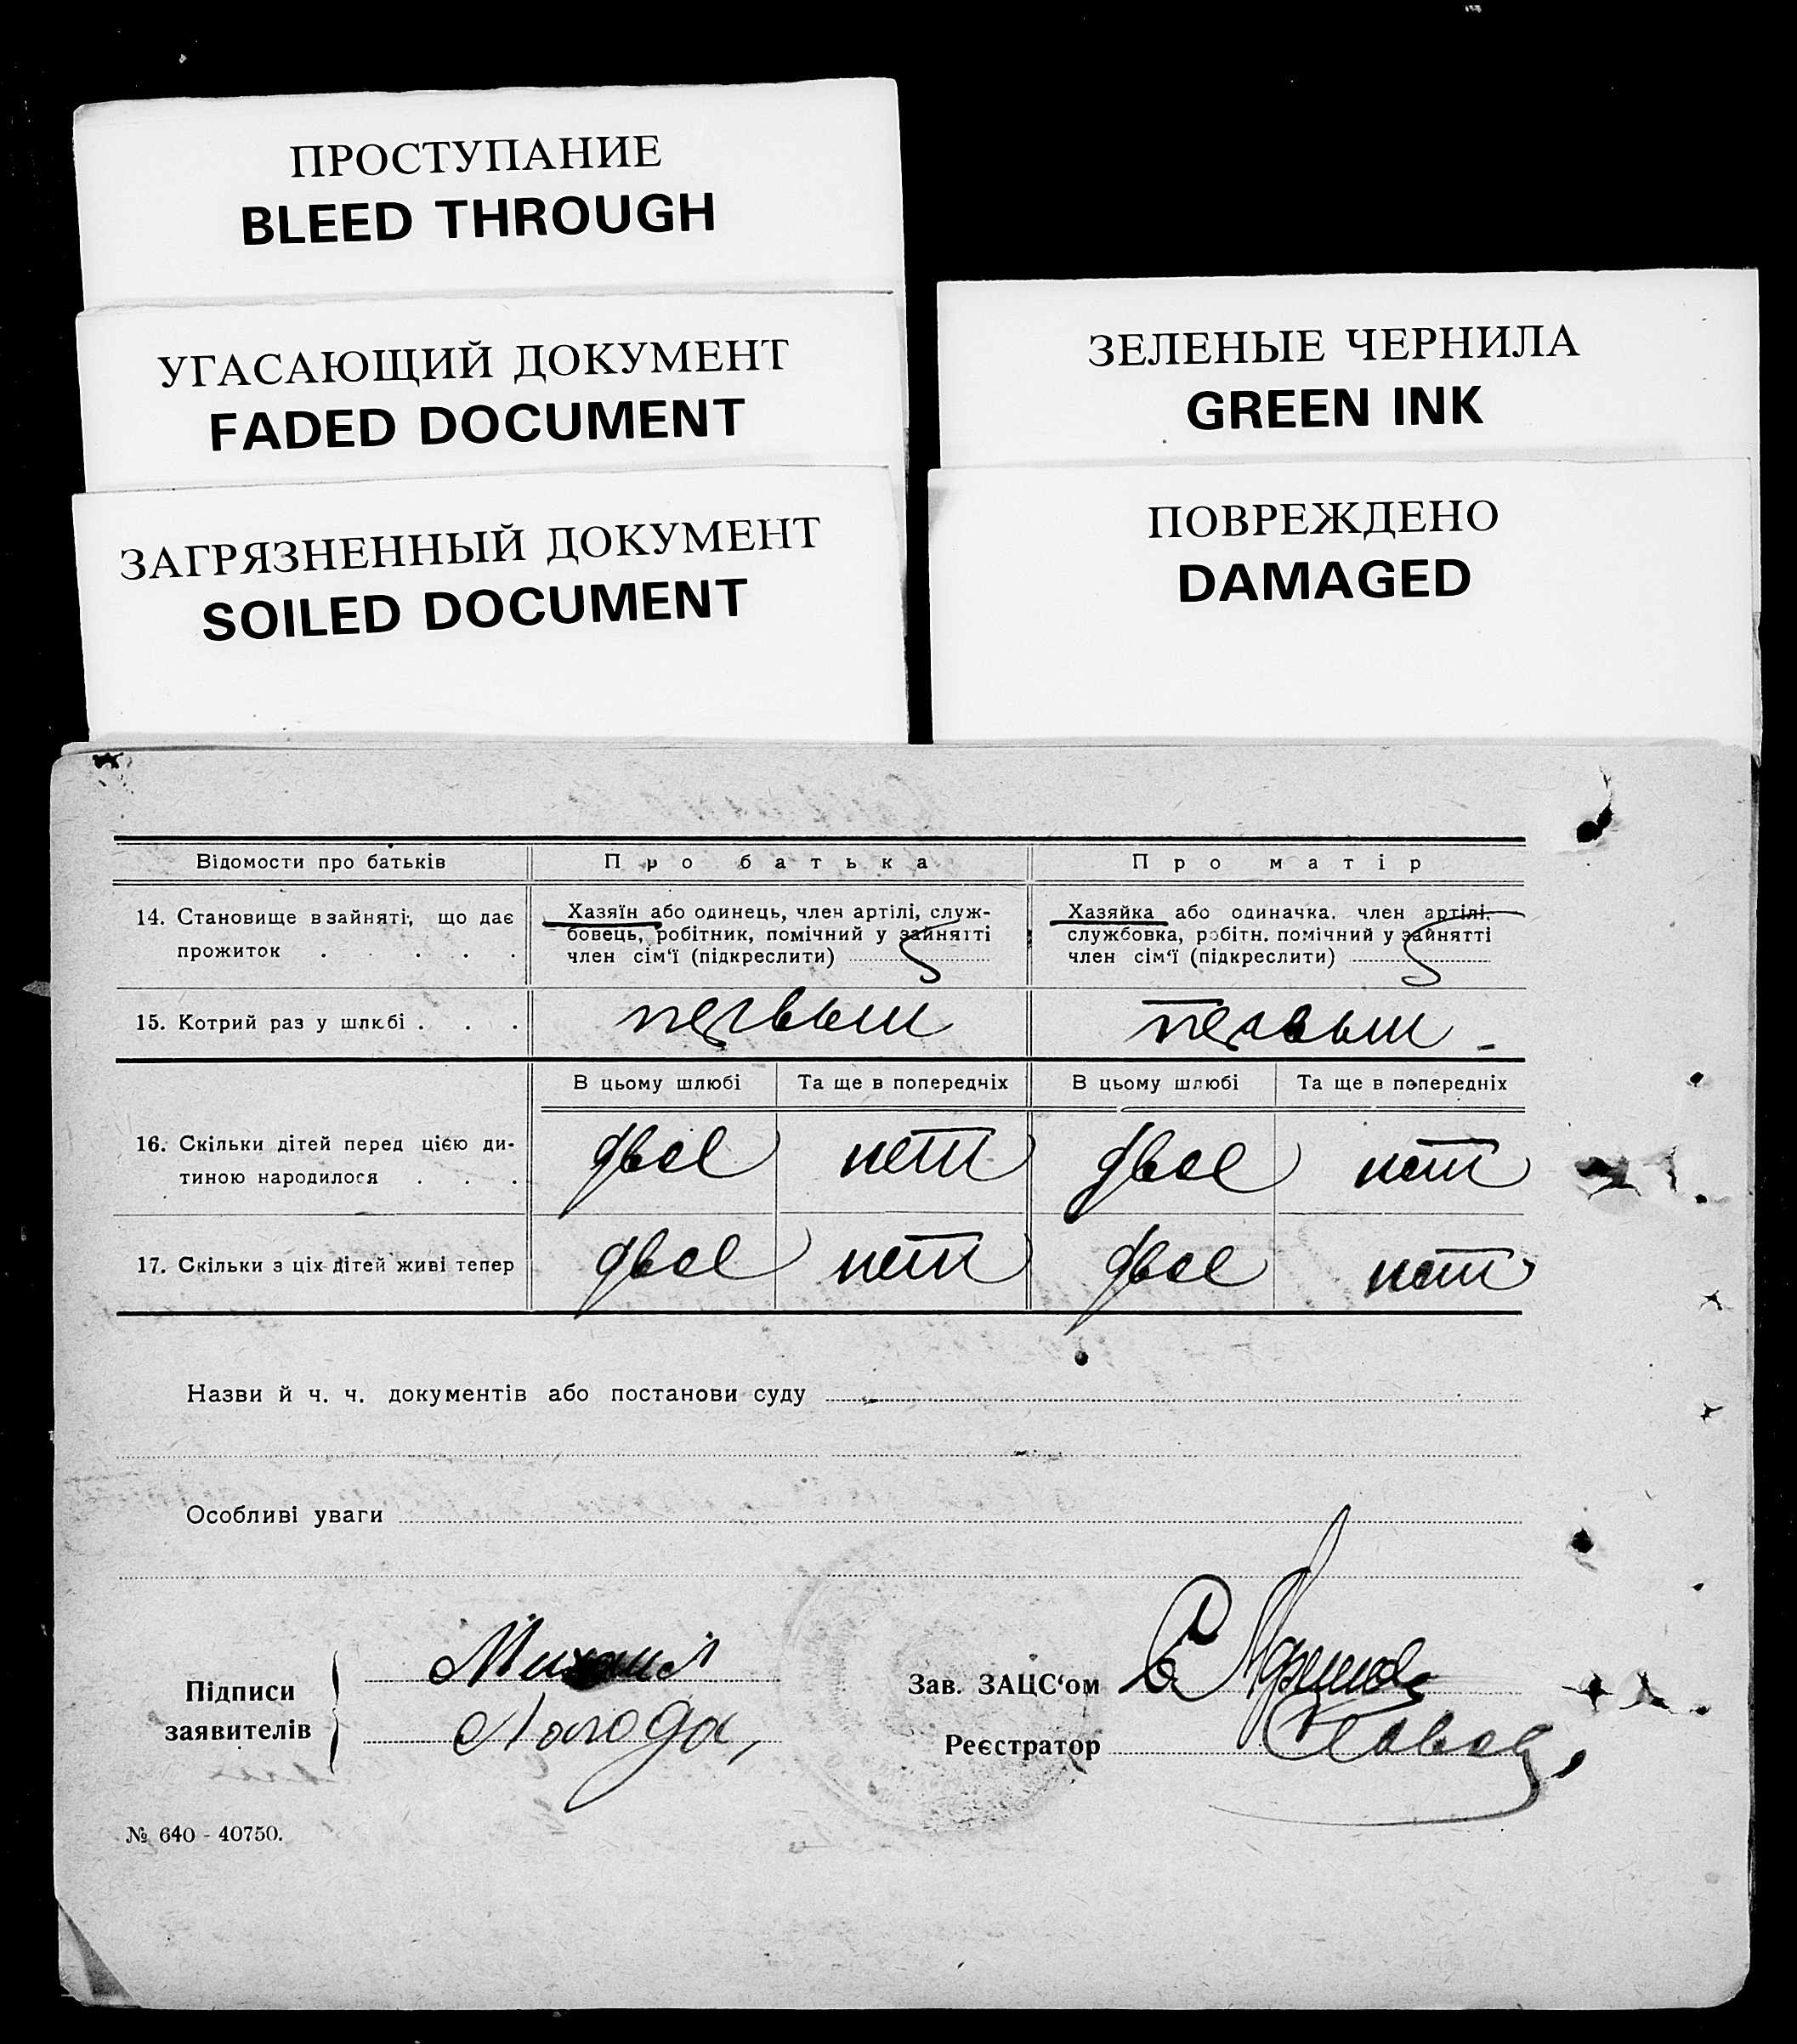 ПРОСТУПАНИЕ
BLEED THROUGH
УГАСАЮЩИЙ ДОКУМЕНТ
FADED DOCUMENT
ЗАГРЯЗНЕННЫЙ ДОКУМЕНТ
SOILED DOCUMENT
ЗЕЛЕНЫЕ ЧЕРНИЛА
GREEN INK
ПОВРЕЖДЕНО
DAMAGED
Відомости про батьків Про батька Про матір
14. Становище в зайняті, що дає
прожиток . . . . .
Хазяїн або одинець, член артілі, служ-
бовець, робітник, помічний у зайнятті
член сім'ї (підкреслити)
Хазяйка або одиначка, член артілі,
службовка, робітн. помічний у зайнятті
член сім'ї (підкреслити)
15. Котрий раз у шлюбі . . . первым первым
В цьому шлюбі Та ще в попередніх В цьому шлюбі Та ще в попередніх
16. Скільки дітей перед цією ди-
тиною народилося . . . двое нет двое нет
17. Скільки з ціх дітей живі тепер двое нет двое нет
Назви й ч. ч. документів або постанови суду
Особливі уваги
Підписи
заявителів
Михаил
Зав. ЗАЦС'ом
Реєстратор
№ 640 - 40750.